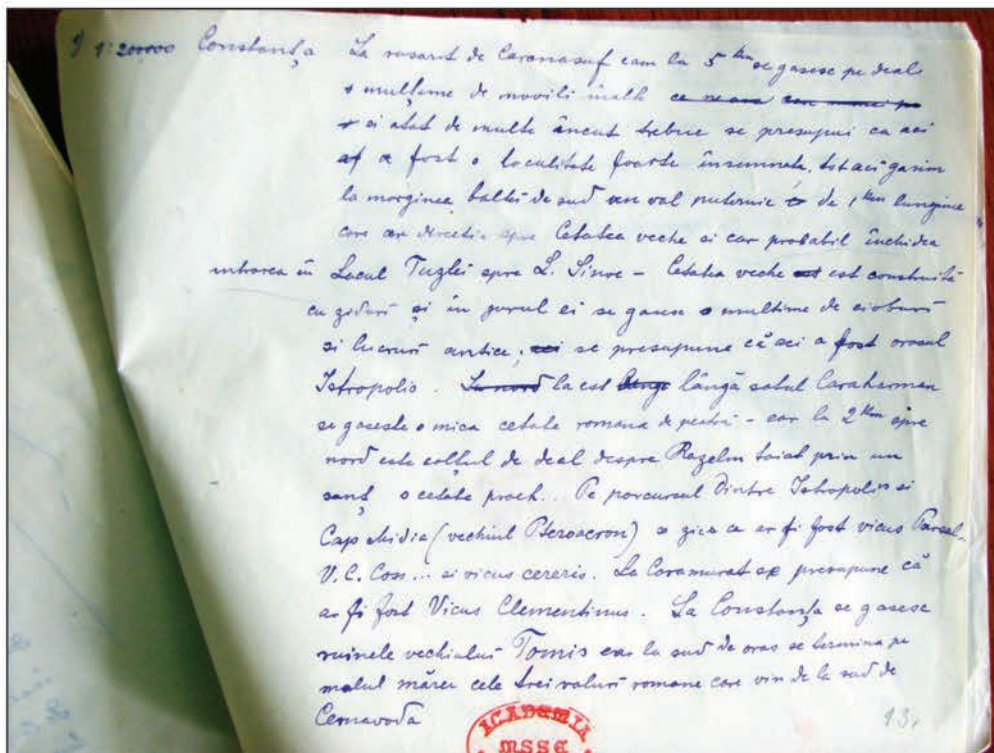 1) 1:200000 Constanța La rasarit de Caranasuf cam la 5 km se gasesc pe deal
o mulțime de movili inalte
si atat de multe âncut trebue se presupui ca aci
a fost o localitate foarte însemnata. tot aci gasim
la marginea baltei de sud un val puternic de 1 km lungime
care are directia spre Cetatea veche si car probabil închidea
intrarea in Lacul Tuzlei spre L. Sinoe – Cetatea veche est construită
cu ziduri și in jurul ei se gasesc o multime de cioburi
si lucruri antice; se presupune că aci a fost orasul
Istropolis. La nord la est lângă satul Caraharman
se gaseste o mica cetate romana de peatră – ear la 2 km spre
nord este colțul de deal despre Razelm taiat prin un
sanț o cetate preh... Pe parcursul dintre Istropolis si
Cap Midia (vechiul Pteroacron) se zice ca ar fi fost vicus
V. C. Con... si vicus cereris. La Caramurat se presupune că
ar fi fost Vicus Clementinus. La Constanța se gasesc
ruinele vechiului Tomis ear la sud de oras se termina pe
malul mărei cele trei valuri romane care vin de la sud de
Cernavodă
13.
ACADEMIA
MSSE